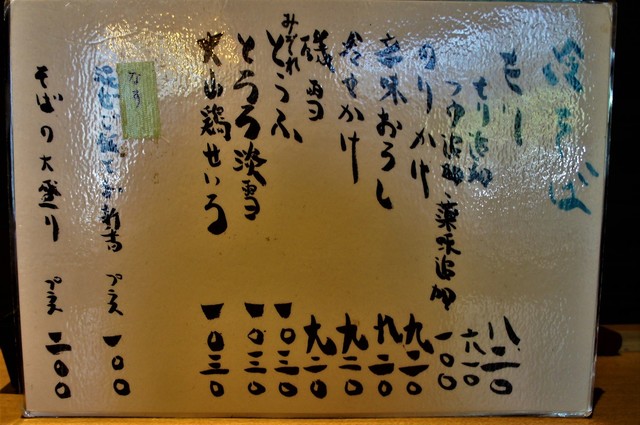 冷そば
もり 八一〇
もり追加 六一〇
つゆ追加・薬味追加 一〇〇
のりかけ 九二〇
辛味おろし 九二〇
冷やかけ 九二〇
磯雪 九二〇
みぞれとうふ 一〇三〇
とろろ淡雪 一〇三〇
大山鶏せいろ 一〇三〇
なす
プラス 一〇〇
そばの大盛り プラス 二〇〇